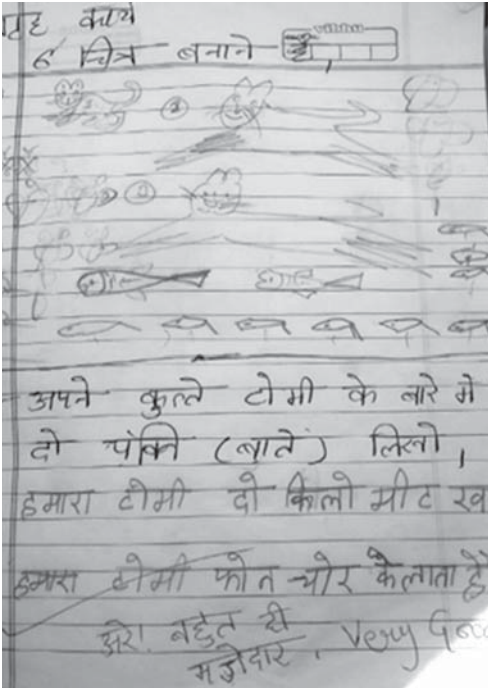 गृह कार्य
६ चित्र बनाने है,
अपने कुत्ते टोमी के बारे मे
दो पंक्ति (बाते) लिखो,
हमारा टोमी दो किलो मीट ख
हमारा टोमी फोन चोर केलाता है
अरे! बहुत ही
मज़ेदार, Very Good